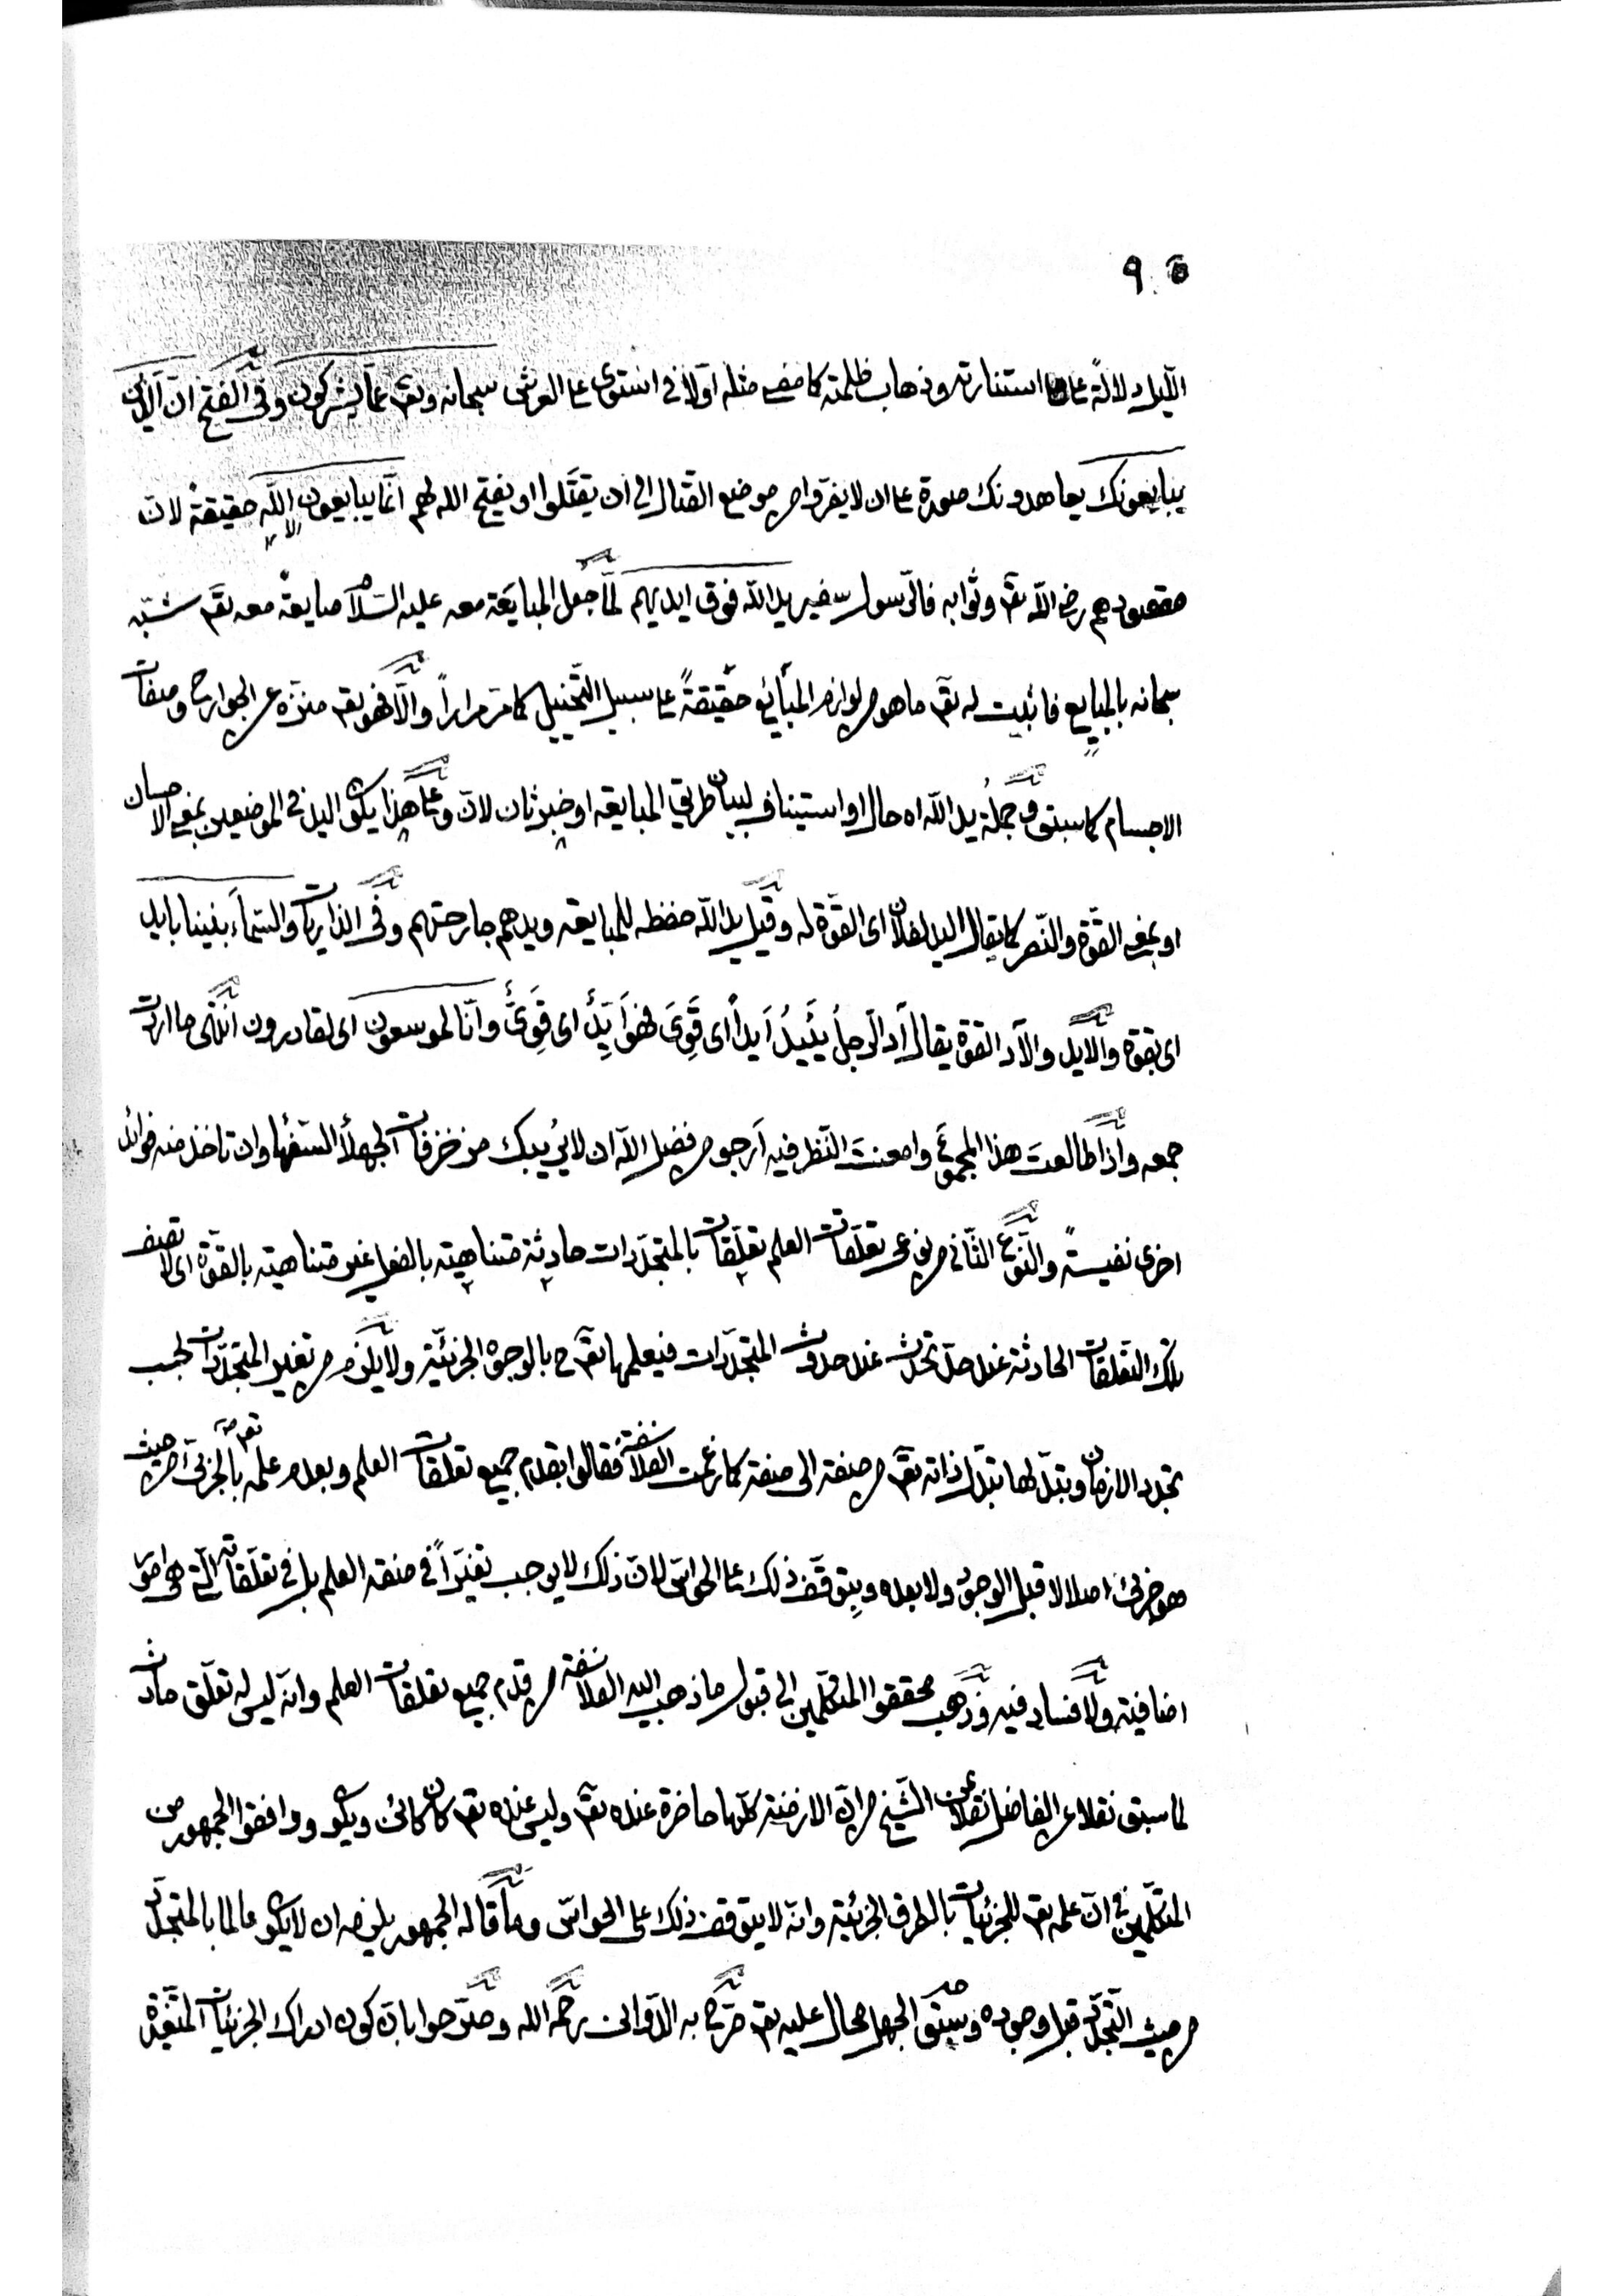 ٩٥
الليل دلالة على استنارته وذهاب ظلمته كما مضى مثله اولا فى استوى على العرش سبحانه وتعـ عما يشركون وفى الفتح ان الذين
يبايعونك يعاهدونك صورة على ان لا يفروا من موضع القتال الى ان يقتلوا او يفتح الله لهم انما يبايعون الله حقيقة لان
مقصودهم رضى الله تعـ وثوابه فالرسول سفير يد الله فوق ايديهم لما جعل المبايعة معه عليه السلام مبايعة معه تعـ شبه
سبحانه بالمبايع فاثبت له تعـ ما هو من لوازم المبائع حقيقة على سبيل التخييل كما مر مرارا والا فهو تعـ منزه عن الجوارح وصفات
الاجسام كما سبق وجملة يد الله اه حال او استيناف لبيان طريق المبايعة او خبر ثان لان وعلى هذا يكون اليد فى الموضعين بمعنى الاحسان
او بمعنى القوة والنصر كما يقال اليد لفلان اى القوة له وقيل يد الله حفظه للمبايعة ويدهم جارحتهم وفى الذاريات والسماء بنيناها بايد
اى بقوة والايد والآد القوة يقال آد الرجل يئيد ايدا اى قوى فهو ايد اى قوى وانا لموسعون اى لقادرون انتهى ما اردت
جمعه واذا طالعت هذا المجموع وامعنت النظر فيه ارجو من فضل الله ان لا يريبك مزخرفات الجهلاء السفهاء وان تاخذ منه فوائد
اخرى نفيسة والنوع الثانى من نوعى تعلقات العلم تعلقات بالمتجددات حادثة متناهية بالفعل غير متناهية بالقوة اى لا تقف
تلك التعلقات الحادثة عند حد تحدث عند حدوث المتجددات فيعلمها تعـ ح بالوجوه الجزئية ولا يلزم من تغير المتجددات بحسب
تجدد الازمان وتبدلها تبدل ذاته تعـ من صفة الى صفة كما زعمت الفلاسفة فقالوا بقدم جميع تعلقات العلم وبعدم علمه تعـ بالجزئى من حيث
هو جزئى اصلا لا قبل الوجود ولا بعده وبتوقف ذلك على الحواس لان ذلك لا يوجب تغيرا فى صفة العلم بل فى تعلقاته التى هى امور
اضافية ولا فساد فيه وذهب محققوا المتكلمين الى قبول ما ذهب اليه الفلاسفة من قدم جميع تعلقات العلم وانه ليس له تعلق حادث
لما سبق نقلا عن الفاضل نقلا عن الشيخ من ان الازمنة كلها حاضرة عنده تعـ وليس عنده تعـ كان كائن ويكون ووافقوا الجمهور من
المتكلمين فى ان علمه تعـ للجزئيات بالطرف الجزئية وانه لا يتوقف ذلك على الحواس وما قاله الجمهور يلزمه ان لا يكون عالما بالمتجدد
من حيث التجدد قبل وجوده وسبق الجهل محال عليه تعـ صرح به الدوانى رحمه الله وصوبوا بان كون ادراك الجزئيات المتغيرة